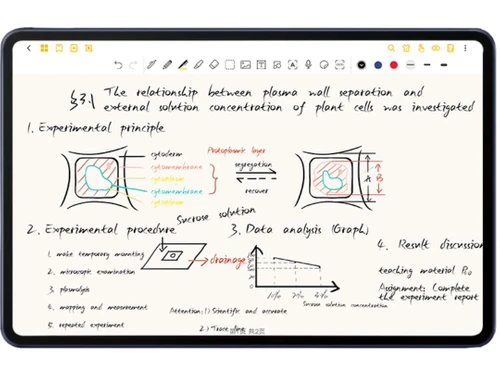 §3.1 The relationship between plasma wall separation and
external solution concentration of plant cells was investigated
1. Experimental principle
cytoderm
cytomembrane
cytoplasm
cytomembrane
cytoplasm
Protoplasmic layer
segregation
recover
A
B
2. Experimental procedure
Sucrose solution
1. make temporary mounting
2. microscopic examination
3. plasmolysis
4. mapping and measurement
5. repeated experiment
drainage
3. Data analysis (Graph)
Sucrose solution concentration
Attention: 1) Scientific and accurate
2.) Trace line
共2页
4. Result discussion
teaching material P10
Assignment: Complete
the experiment report